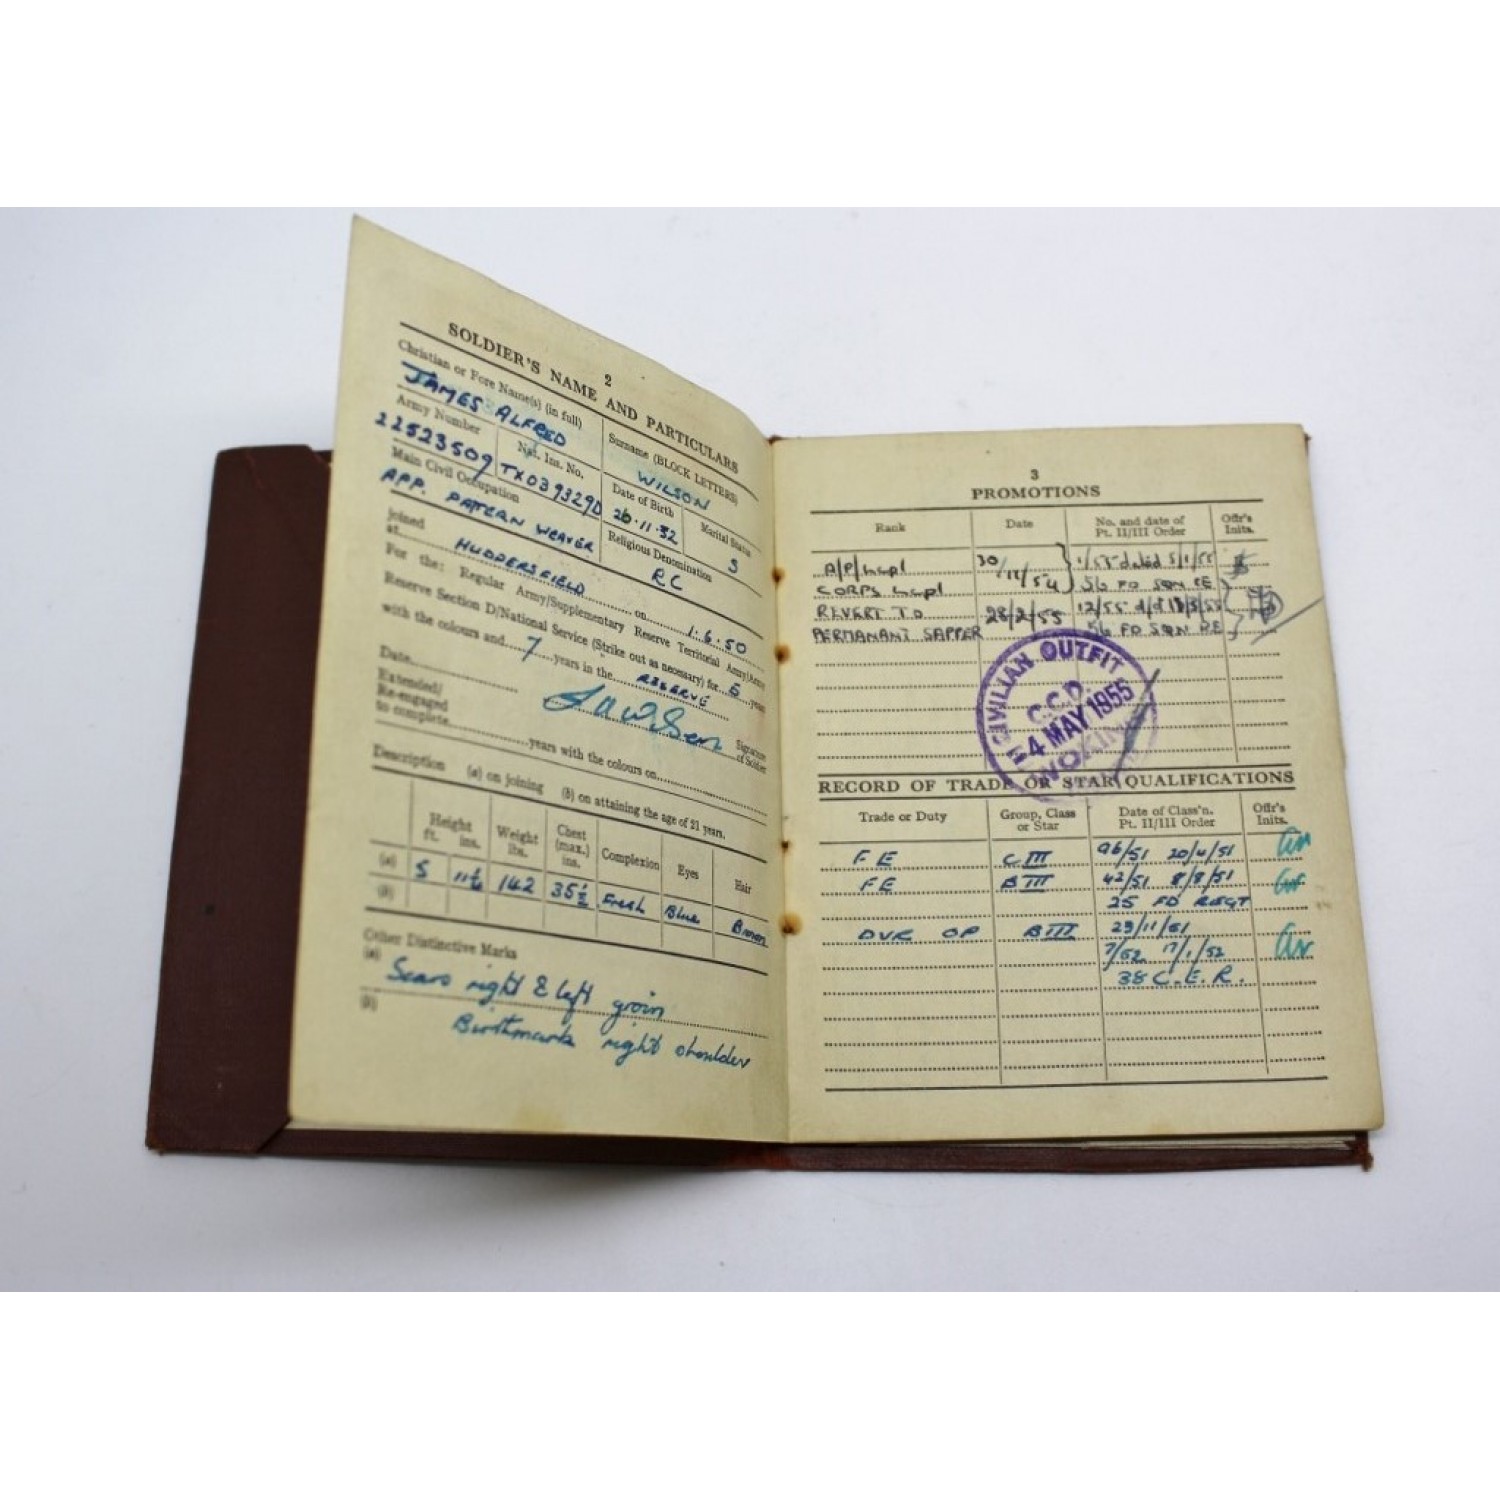 2
SOLDIER'S NAME AND PARTICULARS
Christian or Fore Name(s) (in full)
Surname (BLOCK LETTERS)
JAMES ALFRED
WILSON
Army Number
Nat. Ins. No.
Date of Birth
Marital Status
22523509
TX039329D
26.11.32
S
Main Civil Occupation
Religious Denomination
APP. PATERN WEAVER
RC
Joined
at HUDDERSFIELD on 1.6.50
For the: Regular Army/Supplementary Reserve Territorial Army/Army
Reserve Section D/National Service (Strike out as necessary) for 5 years
with the colours and 7 years in the RESERVE
Date
JAWilson
Signature
of Soldier
Extended/
Re-engaged
to complete years with the colours on
Description (a) on joining (b) on attaining the age of 21 years.
Height
ft. ins.
Weight
lbs.
Chest
(max.)
ins.
Complexion
Eyes
Hair
(a) 5 11½ 142 35½ Fresh Blue Brown
(b)
Other Distinctive Marks
(a) Scars right & left groin
(b) Birthmark right shoulder
3
PROMOTIONS
Rank
Date
No. and date of
Pt. II/III Order
Offr's
Inits.
A/P/L/Cpl 30/11/54 1/55 dated 5/1/55
CORPS L/Cpl 56 FD SQN RE
REVERT TO 28/2/55 12/55
PERMANANT SAPPER 56 FD SQN RE
CIVILIAN OUTFIT
C.C.D.
4 MAY 1955
RECORD OF TRADE OR STAR QUALIFICATIONS
Trade or Duty
Group, Class
or Star
Date of Class'n.
Pt. II/III Order
Offr's
Inits.
FE C III 96/51 20/4/51
FE B III 42/51 8/8/51
25 FD REGT
DVR OP B III 29/11/51
7/52 17/1/52
38 C.E.R.